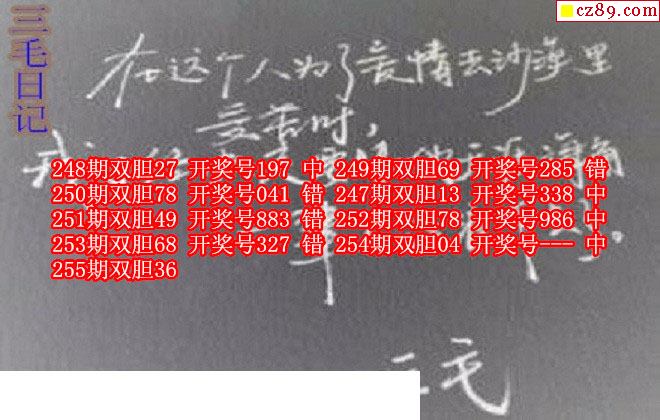 cz89.com
三毛日记
在这个人为了爱情去沙漠里
受苦时，
248期双胆27 开奖号197 中 249期双胆69 开奖号285 错
250期双胆78 开奖号041 错 247期双胆13 开奖号338 中
251期双胆49 开奖号883 错 252期双胆78 开奖号986 中
253期双胆68 开奖号327 错 254期双胆04 开奖号--- 中
255期双胆36
三毛